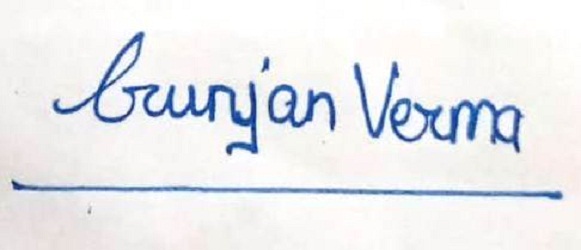 Gunjan Verma